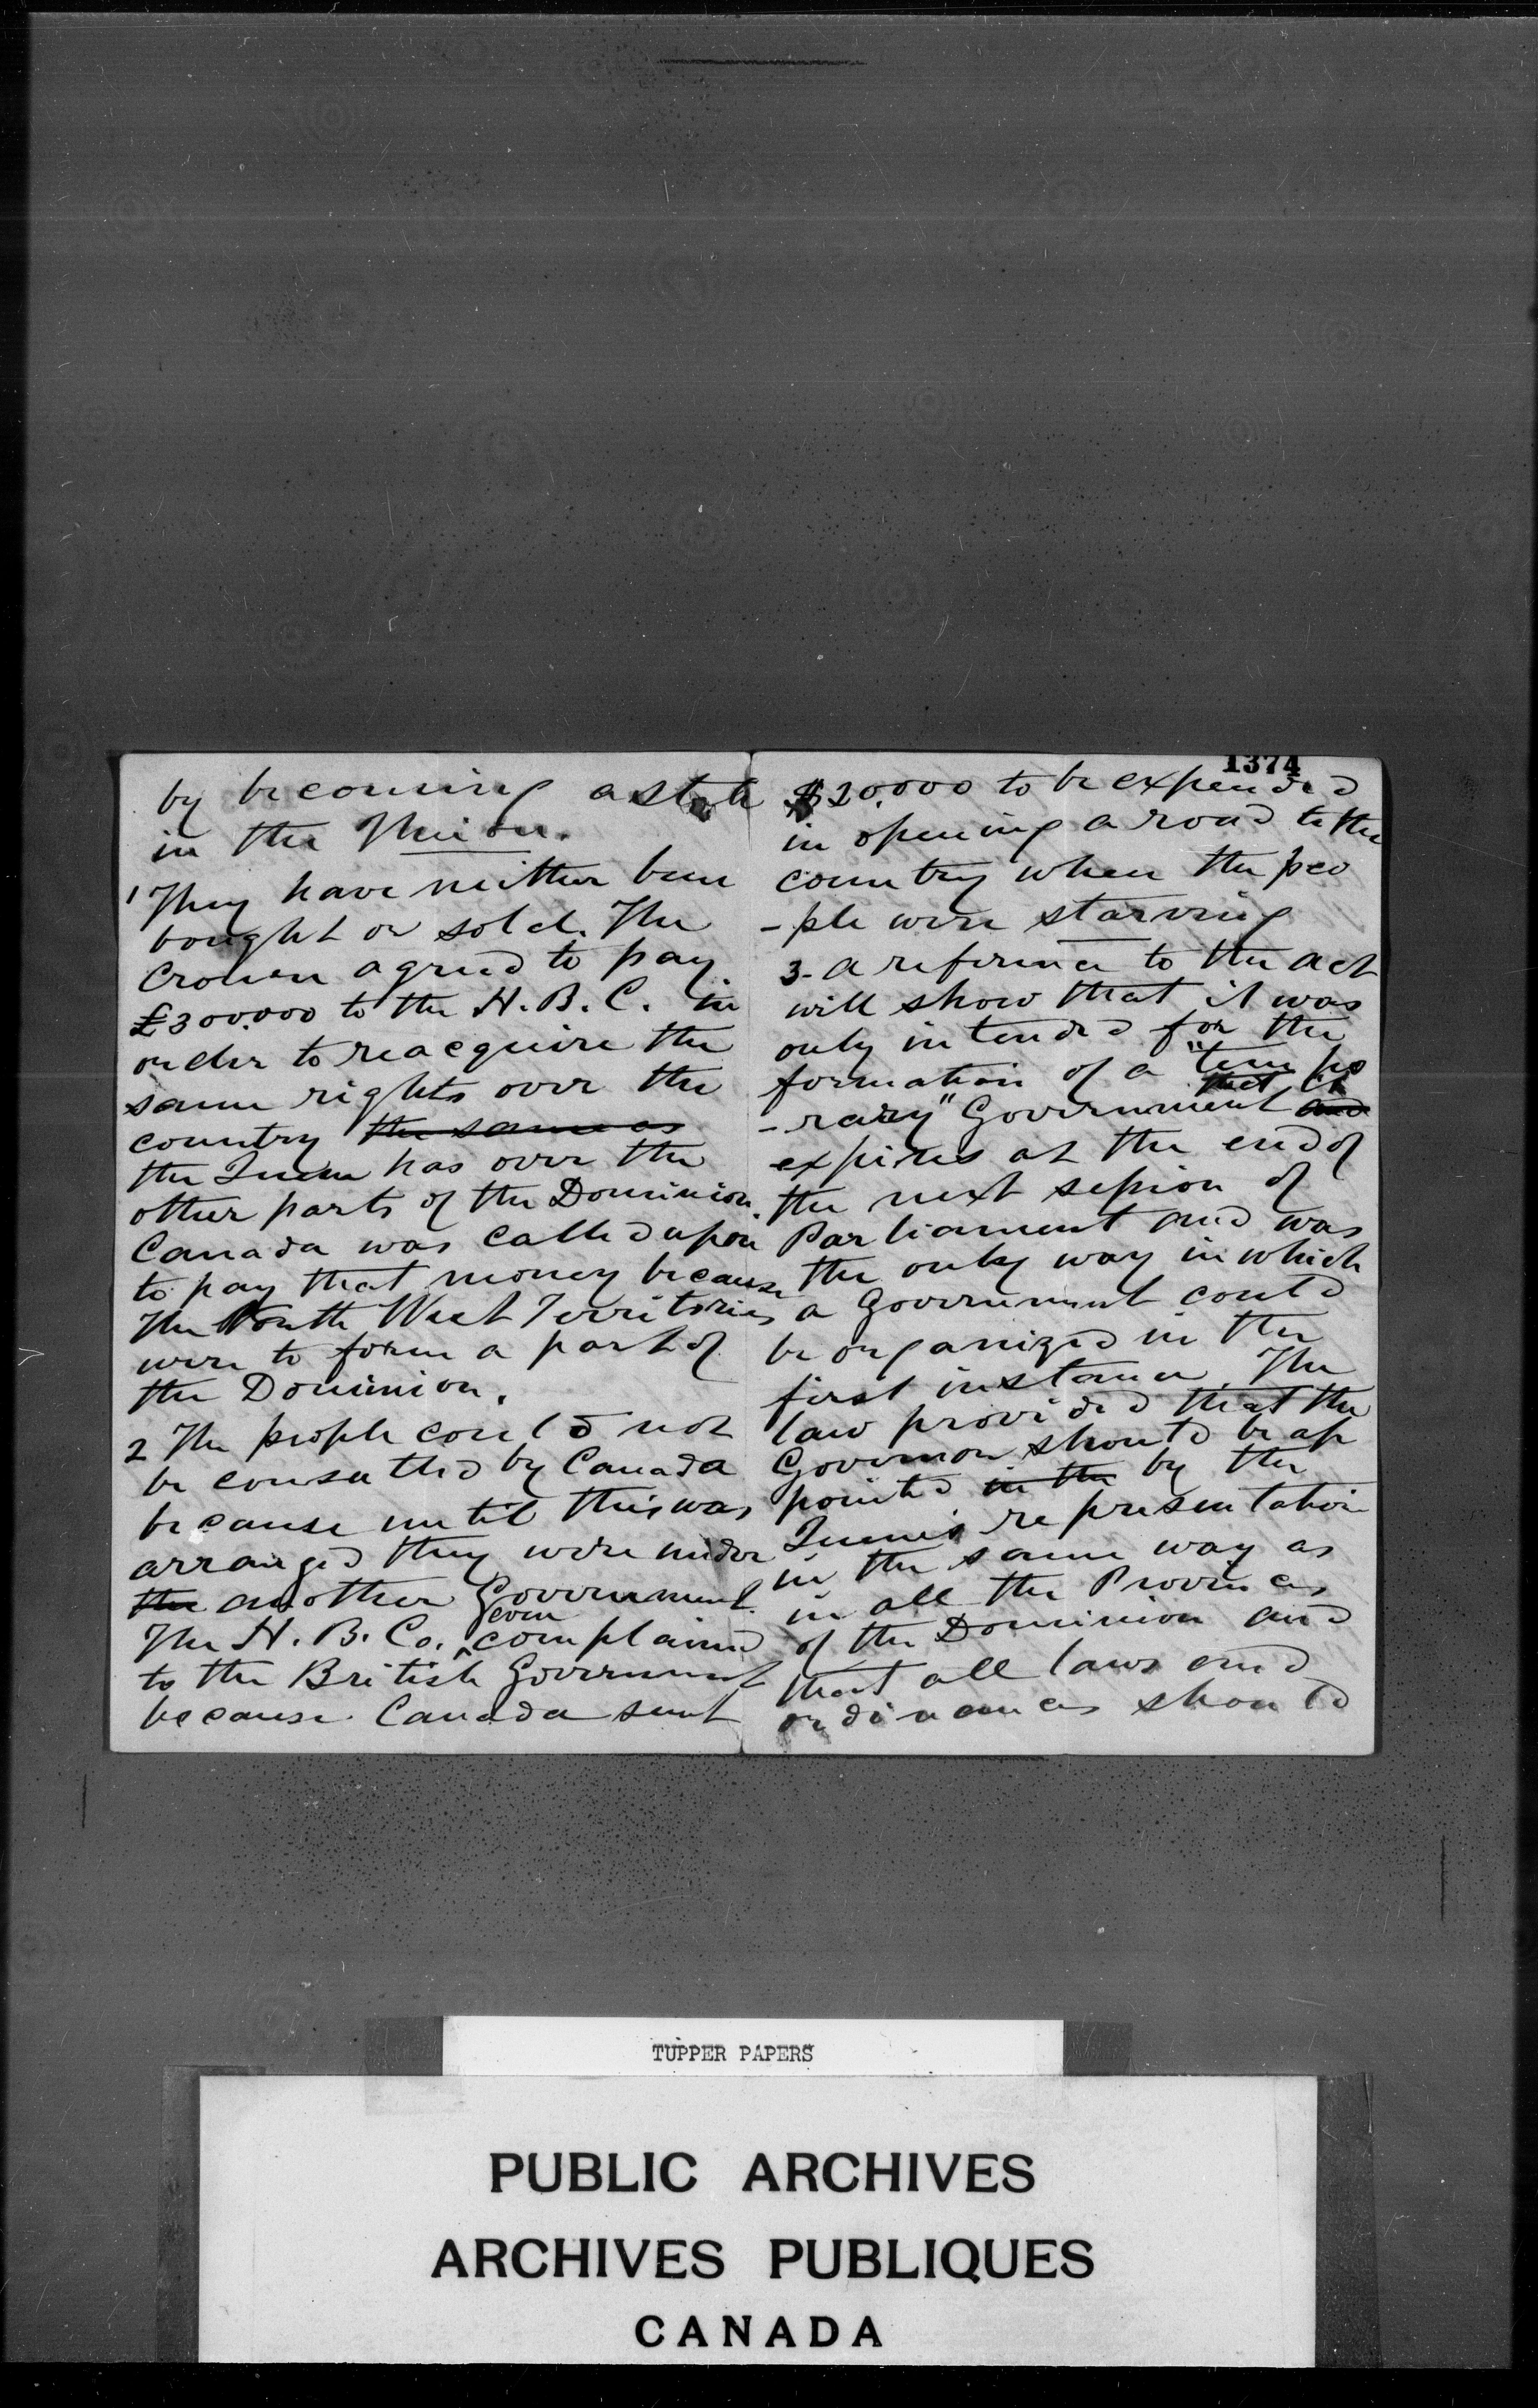 by becoming a state
in the Union.
1 They have neither been
bought or sold. The
Crown agreed to pay
£300.000 to the H. B. C. in
order to reacquire the
same rights over the
country the same as
the Queen has over the
other parts of the Dominion.
Canada was called upon
to pay that money because
The North West Territories
were to form a part of
the Dominion.
2 The people could not
be consulted by Canada
because until this was
arranged they were under
the another Government.
even
The H. B. Co. ^ complained
to the British Government
because Canada sent
1374
$20.000 to be expended
in opening a road to the
country when the peo
-ple were starving
3- a reference to the act
will show that it was
only intended for the
formation of a "tempo
that
-rary" Government and
expires at the end of
the next session of
Parliament and was
the only way in which
a Government could
be organized in the
first instance. The
law provided that the
Governor should be ap
pointed in the by the
Queen's representation
in the same way as
in all the Provinces
of the Dominion and
that all laws and
ordinances should
TUPPER PAPERS
PUBLIC ARCHIVES
ARCHIVES PUBLIQUES
CANADA